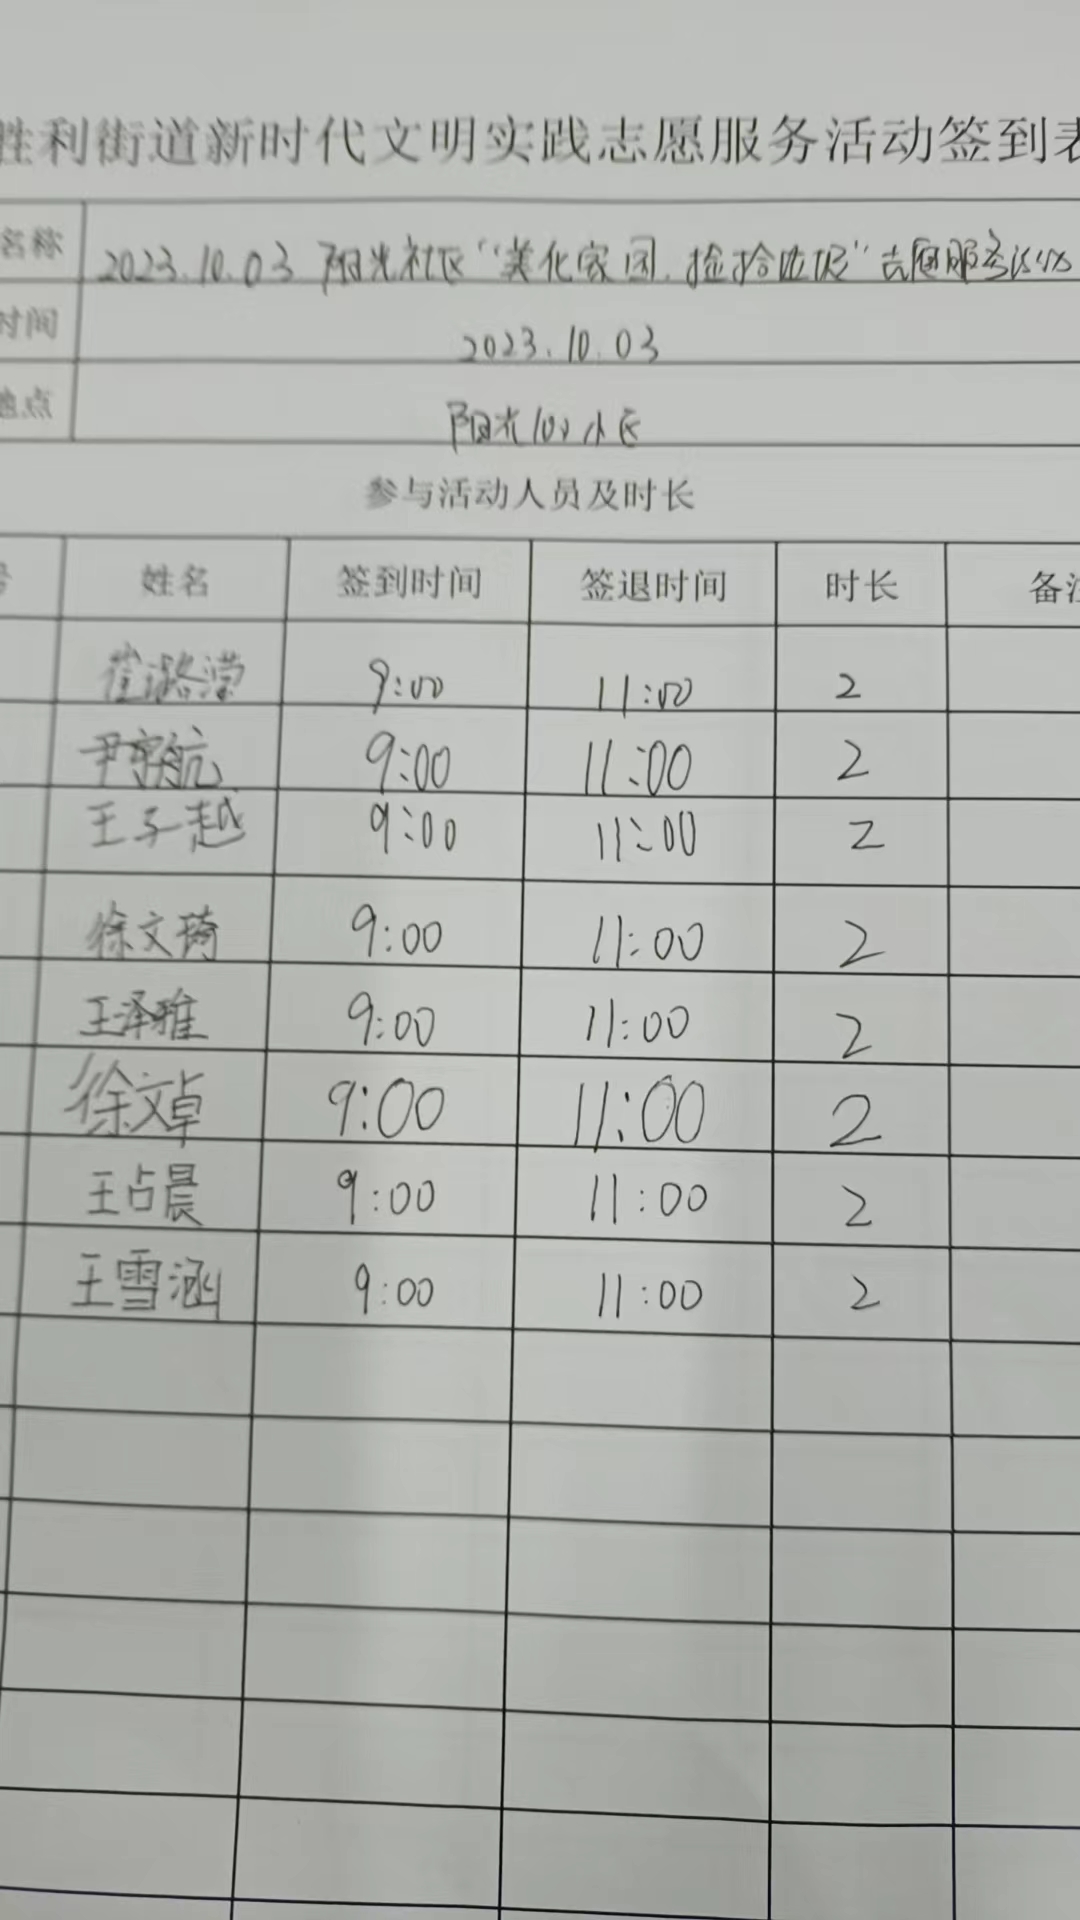 胜利街道新时代文明实践志愿服务活动签到表
名称 2023.10.03 阳光社区“美化家园.捡拾垃圾”志愿服务活动
时间 2023.10.03
地点 阳光100小区
参与活动人员及时长
号 姓名 签到时间 签退时间 时长 备注
崔潞滢 9:00 11:00 2
尹航 9:00 11:00 2
王子越 9:00 11:00 2
徐文琦 9:00 11:00 2
王泽雅 9:00 11:00 2
徐文卓 9:00 11:00 2
王占晨 9:00 11:00 2
王雪涵 9:00 11:00 2